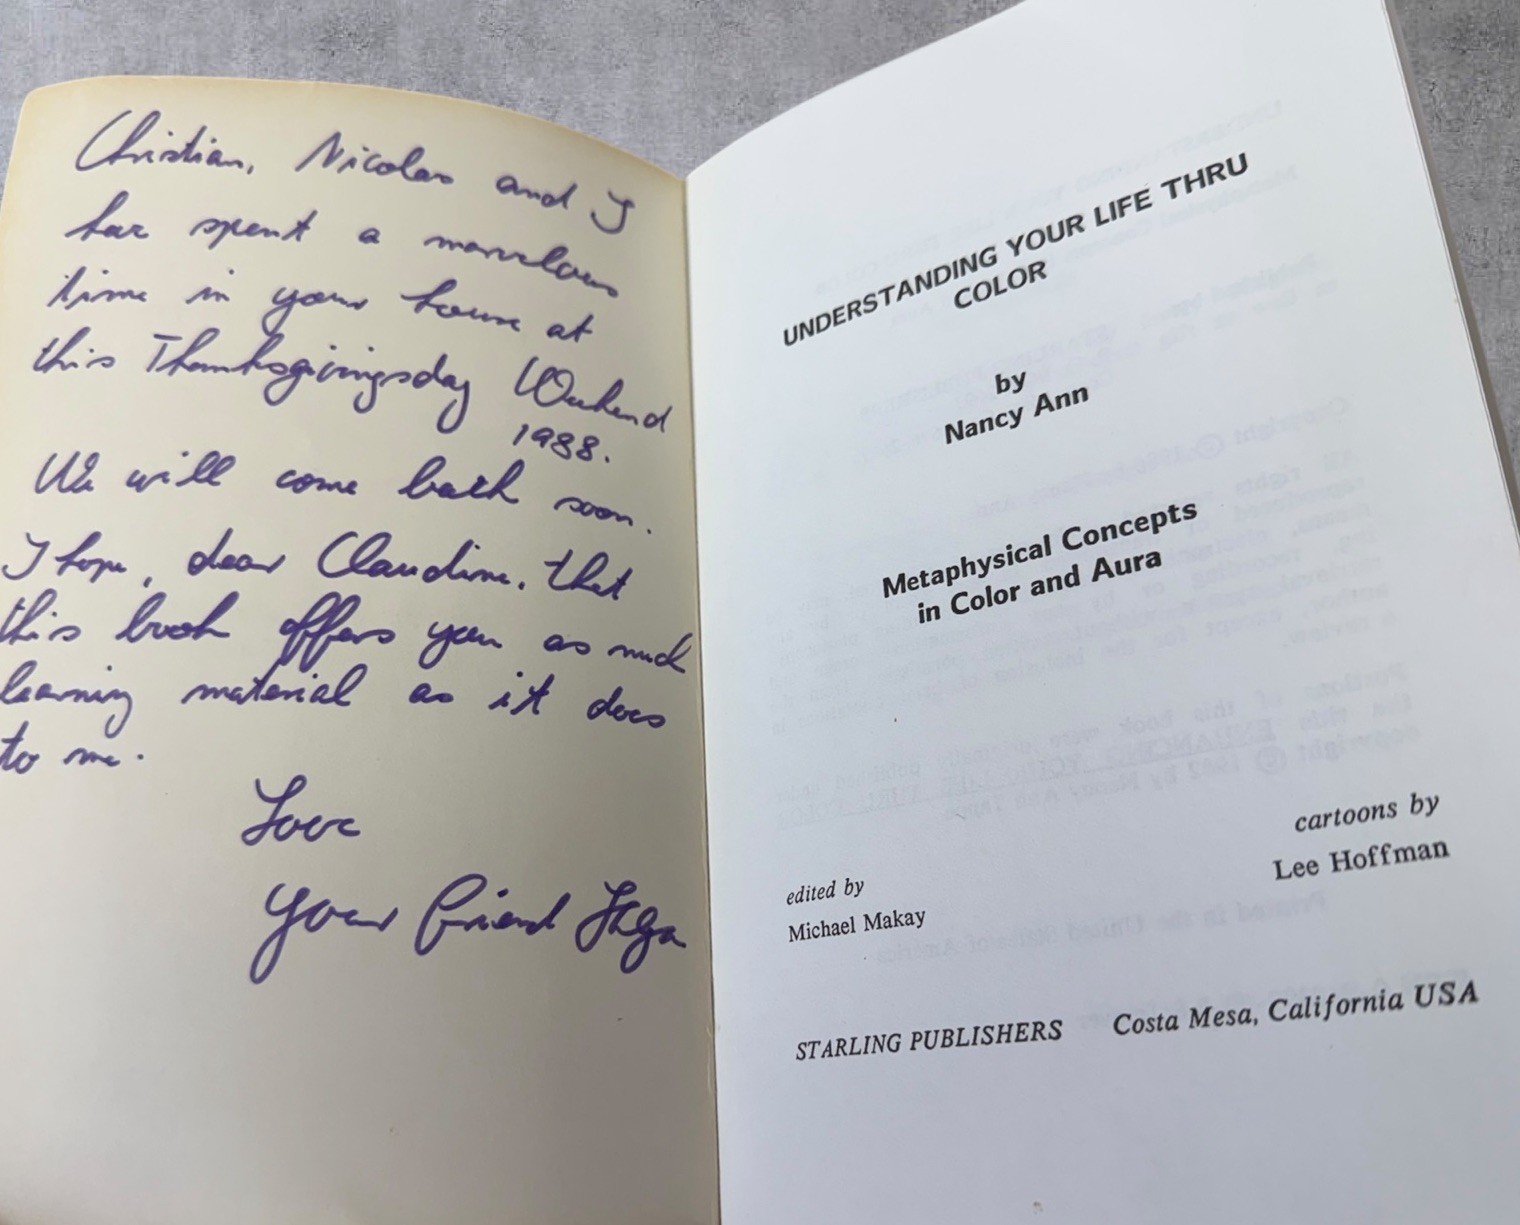 Christian, Nicolas and I
har spent a marvelous
time in your house at
this Thanksgivingsday Weekend
1988.
We will come back soon.
I hope, dear Claudine, that
this book offers you as much
learning material as it does
to me.
Love
your friend
UNDERSTANDING YOUR LIFE THRU
COLOR
by
Nancy Ann
Metaphysical Concepts
in Color and Aura
cartoons by
Lee Hoffman
edited by
Michael Makay
STARLING PUBLISHERS Costa Mesa, California USA